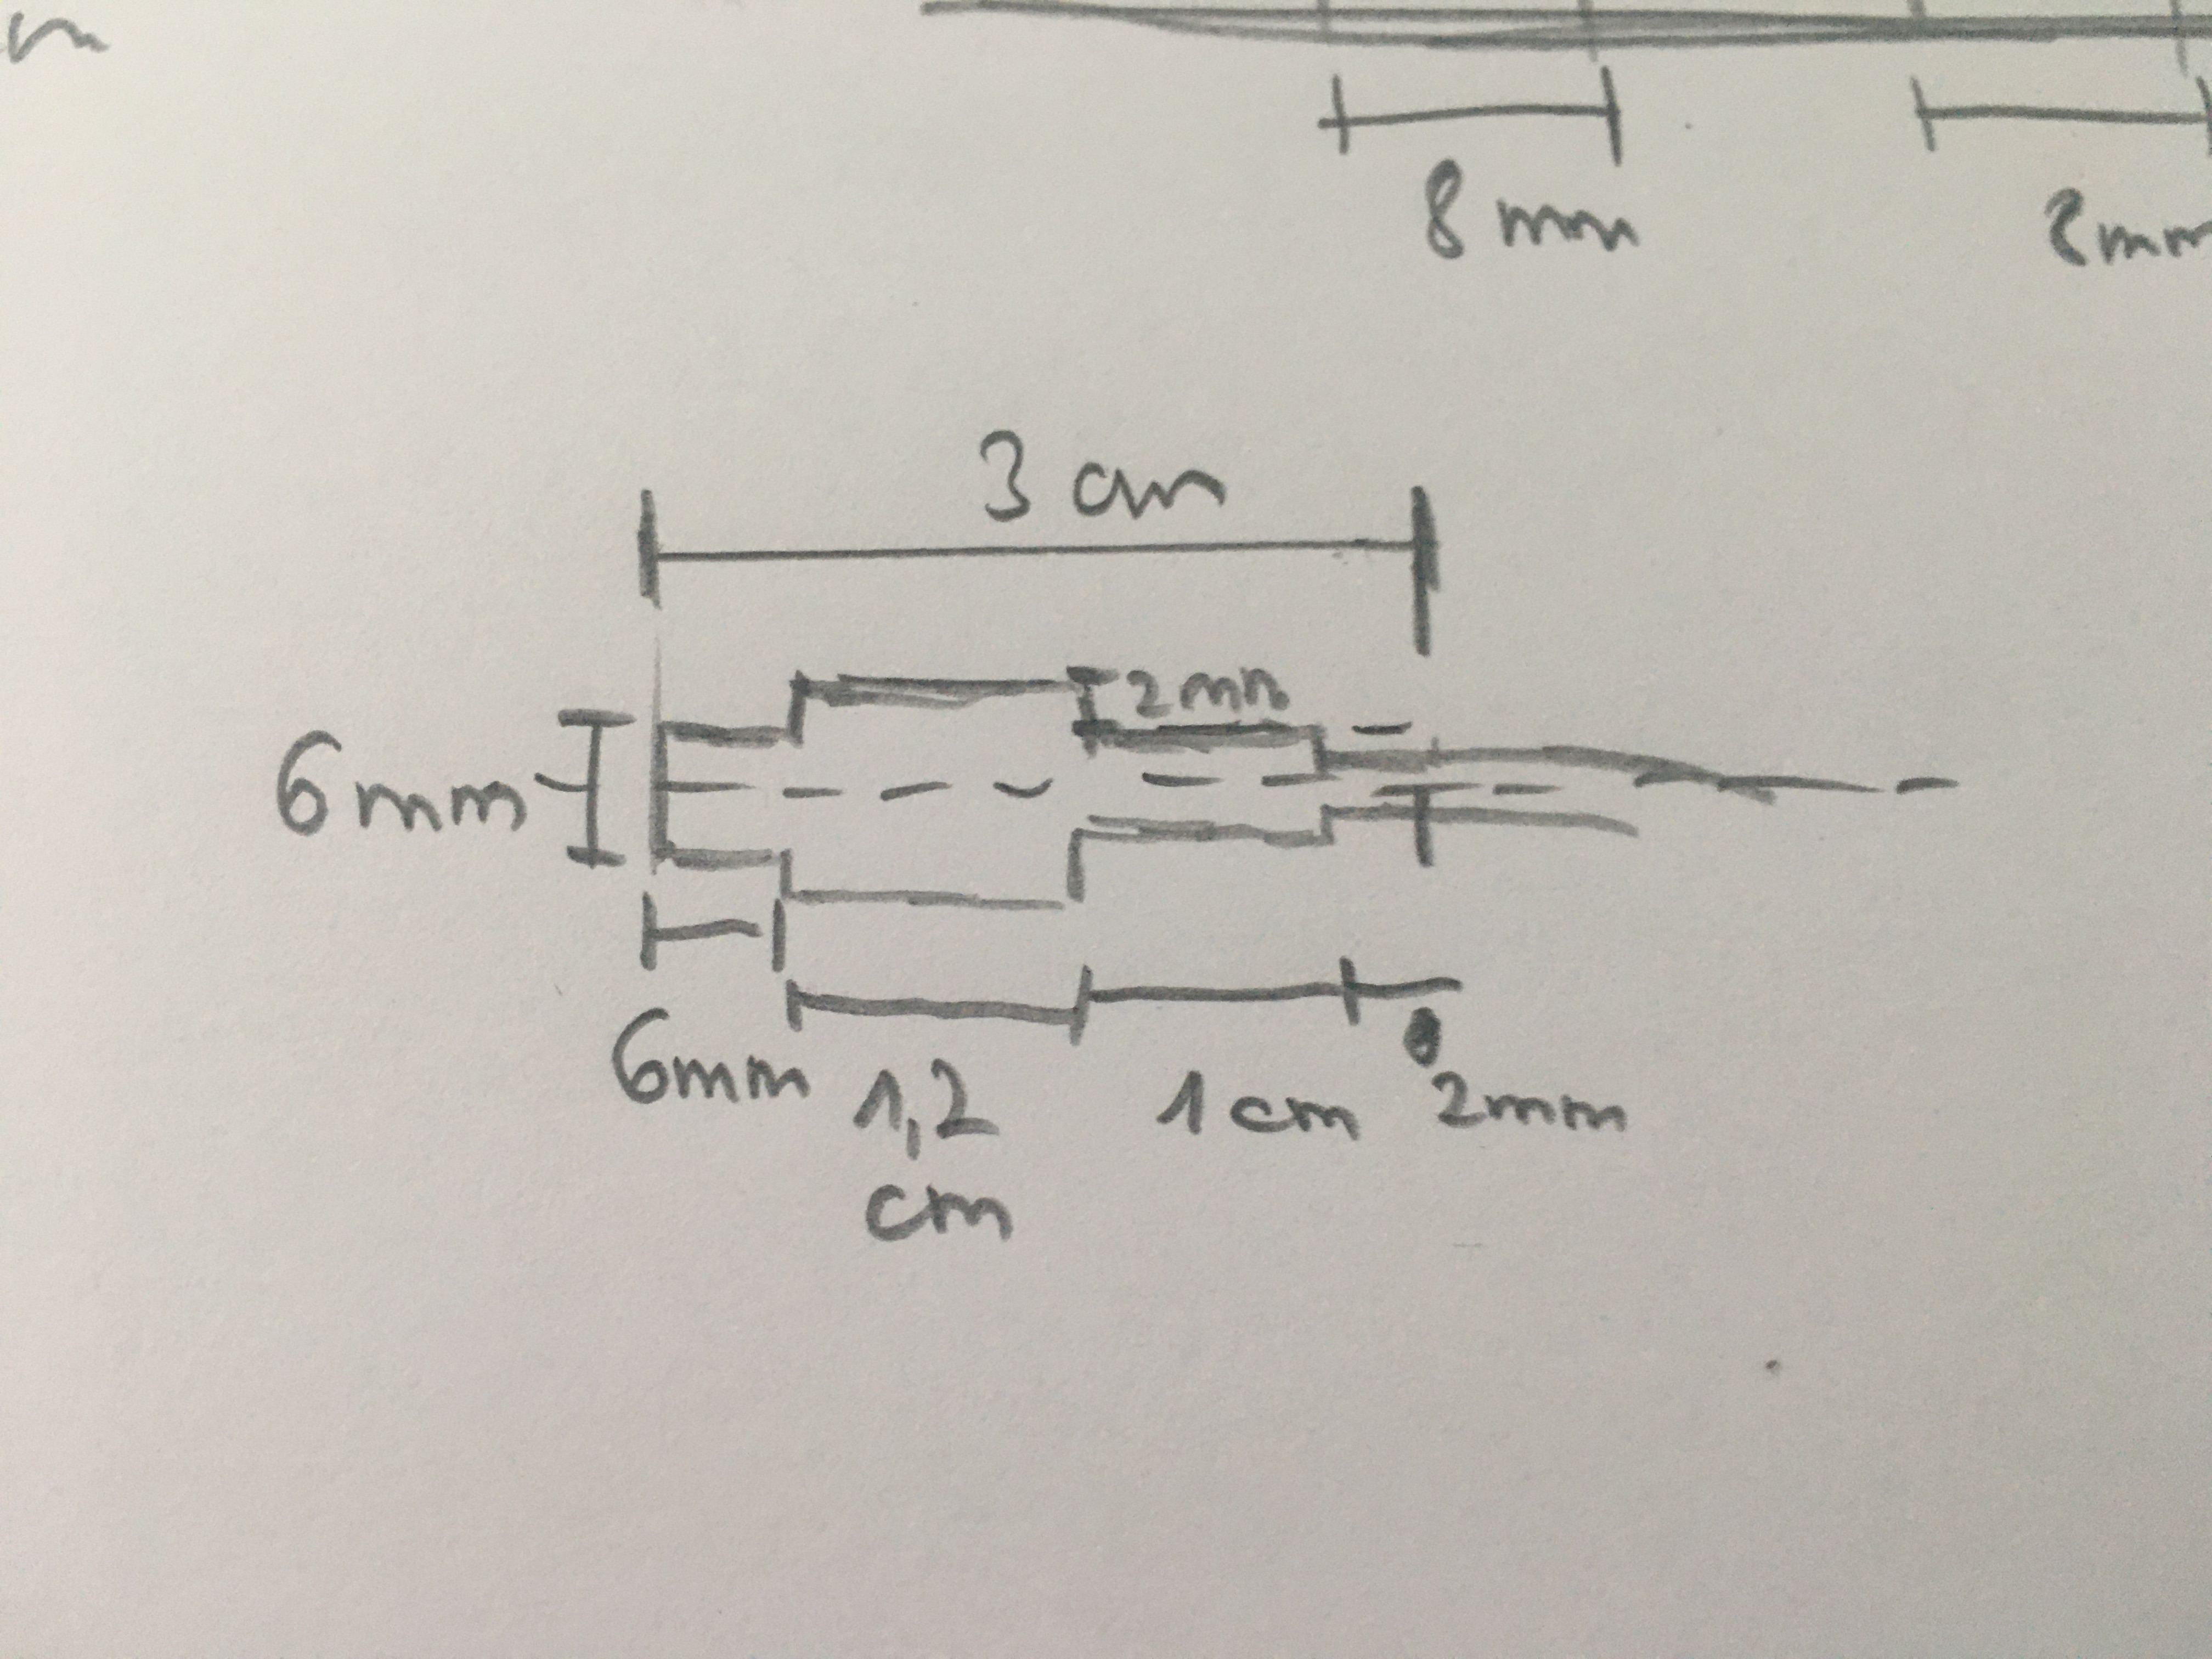 8 mm
8mm
3 cm
2mm
6mm
6mm
1,2
cm
1 cm
2mm